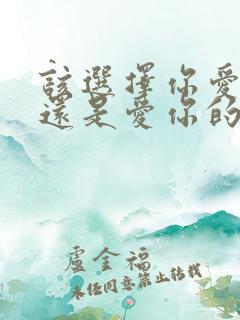 該選擇你愛
還是愛你的
盧金福
未經同意禁止轉載